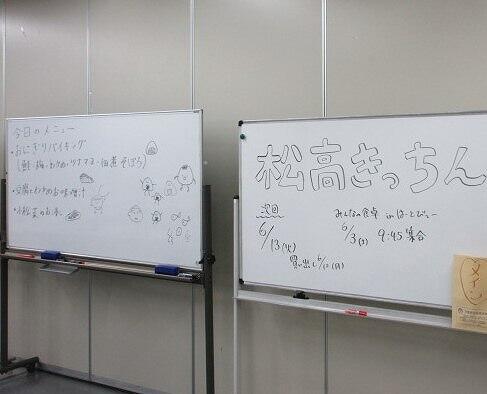 今日のメニュー
・おにぎりバイキング
(鮭・梅・わかめ・ツナマヨ・佃煮 そぼろ)
・豆腐とわかめのお味噌汁
・小松菜の
松高きっちん
次回
6/13(火)
買い出し 6/12(月)
みんなの食卓 in ほーとぴぁー
6/3(土) 9:45 集合
メイン